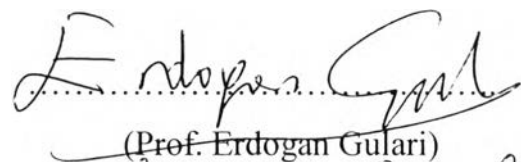 Erdogan Gul
(Prof. Erdogan Gulari)